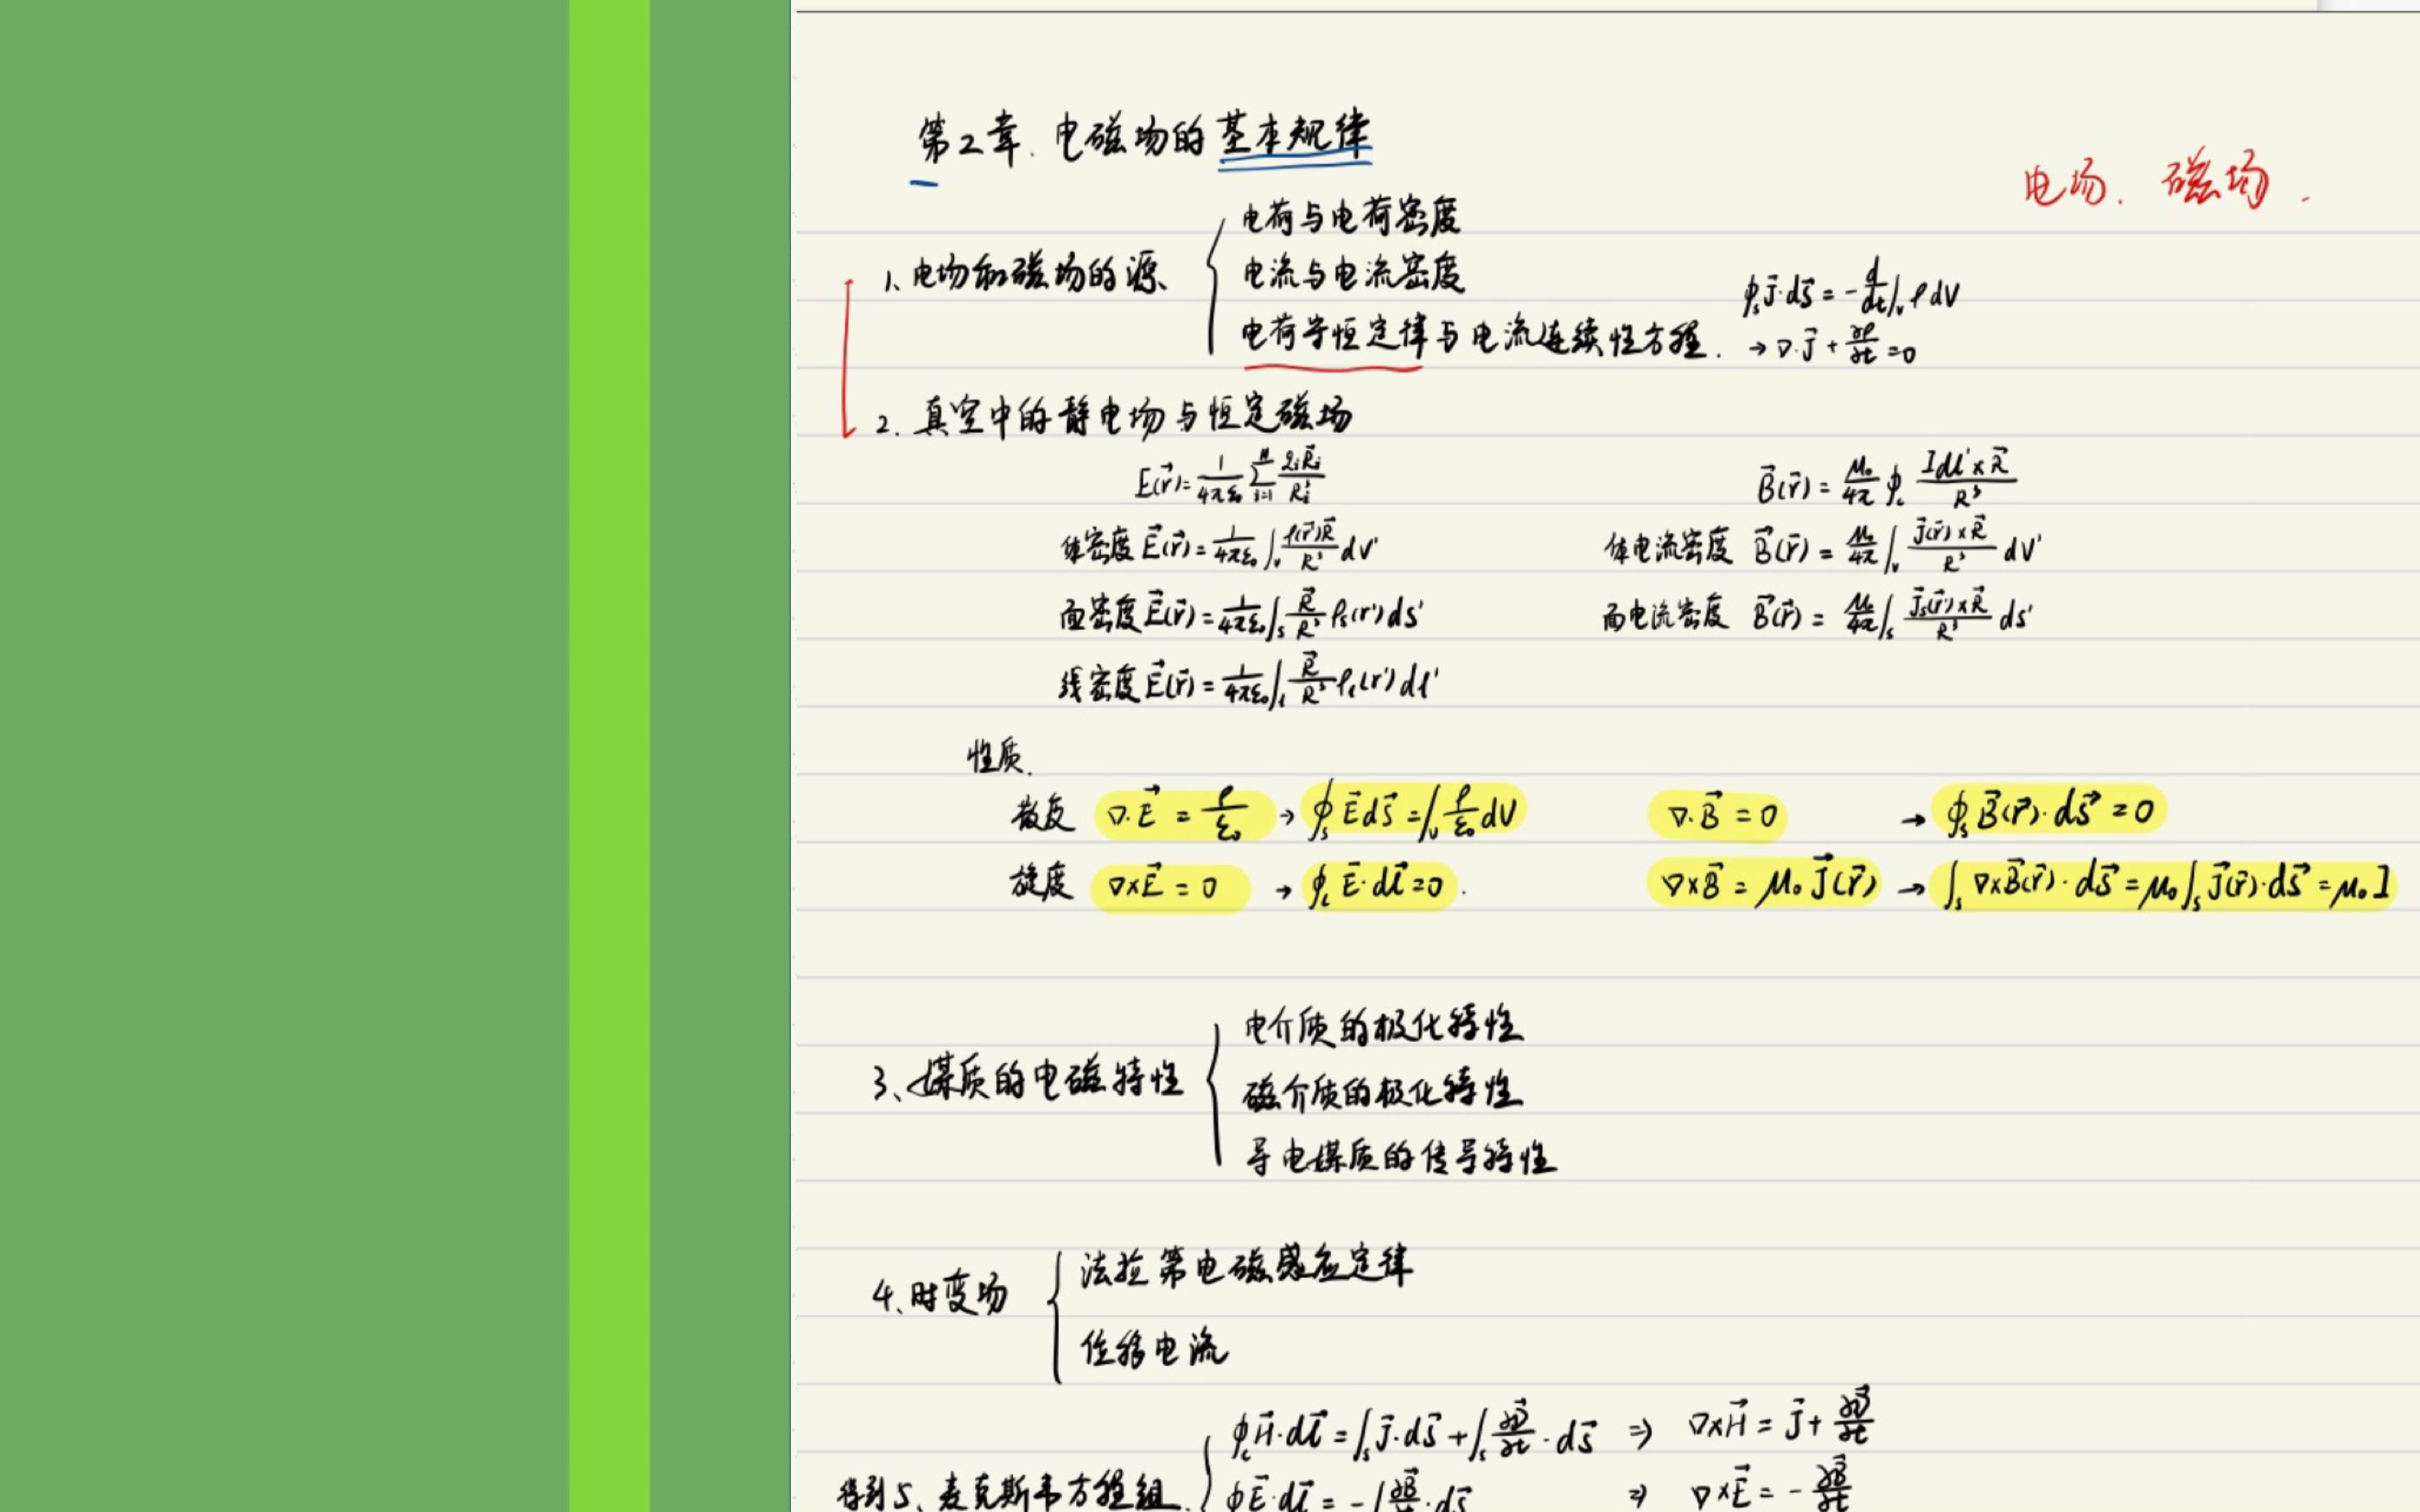 第2章. 电磁场的基本规律
电场. 磁场.
1、电场和磁场的源
电荷与电荷密度
电流与电流密度
电荷守恒定律与电流连续性方程.
∮ₛJ⃗·dS⃗ = -d/dt∫ᵥρdV
→ ∇·J⃗ + ∂ρ/∂t = 0
2. 真空中的静电场与恒定磁场
E(r⃗) = 1/4πε₀ ∑ᵢ₌₁ᴺ qᵢR⃗ᵢ/Rᵢ³
B⃗(r⃗) = μ₀/4π ∮c Idl'×R⃗/R³
体密度 E⃗(r⃗) = 1/4πε₀ ∫ᵥ ρ(r⃗')R⃗/R³ dV'
体电流密度 B⃗(r⃗) = μ₀/4π ∫ᵥ J⃗(r⃗')×R⃗/R³ dV'
面密度 E⃗(r⃗) = 1/4πε₀ ∫ₛ R⃗/R³ ρₛ(r')ds'
面电流密度 B⃗(r⃗) = μ₀/4π ∫ₛ J⃗ₛ(r⃗')×R⃗/R³ ds'
线密度 E⃗(r⃗) = 1/4πε₀ ∫ₗ R⃗/R³ ρₗ(r')dl'
性质.
散度 ∇·E⃗ = ρ/ε₀ → ∮ₛE⃗dS⃗ = ∫ᵥρ/ε₀dV ∇·B⃗ = 0 → ∮ₛB⃗(r⃗)·dS⃗ = 0
旋度 ∇×E⃗ = 0 → ∮c E⃗·dl⃗ = 0. ∇×B⃗ = μ₀J⃗(r⃗) → ∫ₛ∇×B⃗(r⃗)·dS⃗ = μ₀∫ₛJ⃗(r⃗)·dS⃗ = μ₀I
3、媒质的电磁特性
电介质的极化特性
磁介质的极化特性
导电媒质的传导特性
4、时变场
法拉第电磁感应定律
位移电流
得到5、麦克斯韦方程组
∮c H⃗·dl⃗ = ∫ₛJ⃗·dS⃗ + ∫ₛ∂D⃗/∂t·dS⃗ ⇒ ∇×H⃗ = J⃗ + ∂D⃗/∂t
∮E⃗·dl⃗ = -∫∂B⃗/∂t·dS⃗ ⇒ ∇×E⃗ = -∂B⃗/∂t